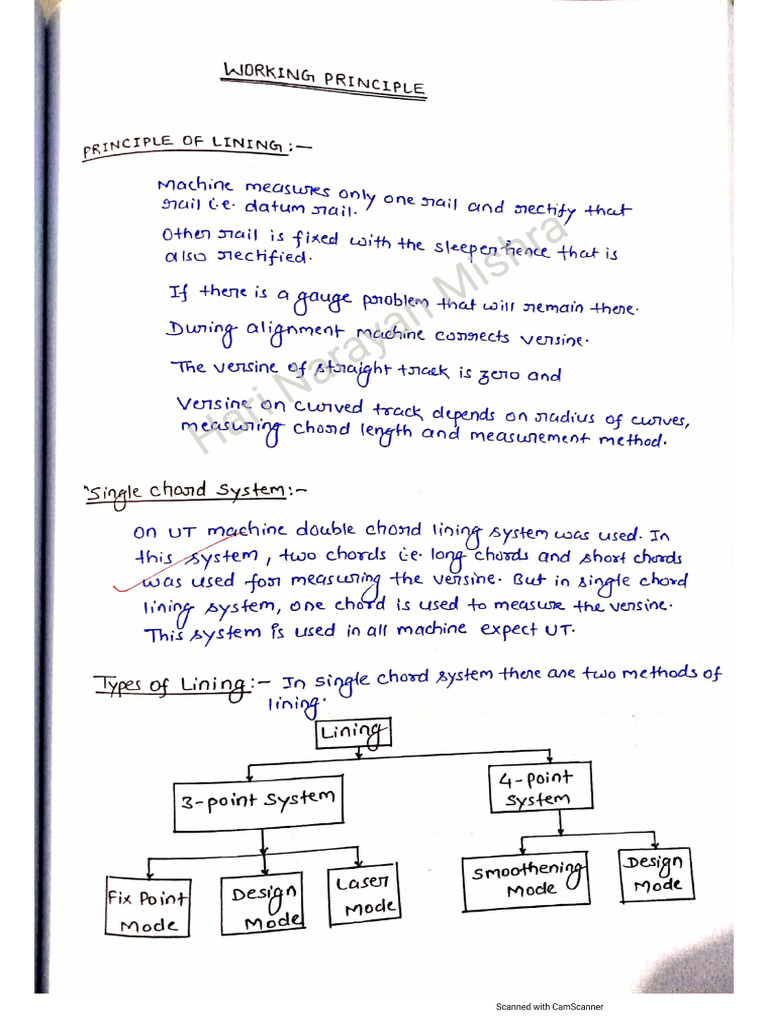 WORKING PRINCIPLE
PRINCIPLE OF LINING:-
Machine measures only one rail and rectify that
rail i.e. datum rail.
Other rail is fixed with the sleeper hence that is
also rectified.
If there is a gauge problem that will remain there.
During alignment machine corrects versine.
The versine of straight track is zero and
Versine on curved track depends on radius of curves,
measuring chord length and measurement method.
Hari Narayan Mishra
"Single Chord System:-
On UT machine double chord lining system was used. In
this system, two chords i.e. long chords and short chords
was used for measuring the versine. But in single chord
lining system, one chord is used to measure the versine.
This system is used in all machine expect UT.
Types of Lining:- In single chord system there are two methods of
lining.
Lining
3-point System
4-point
System
Fix Point
Mode
Design
Mode
Laser
Mode
Smoothening
Mode
Design
Mode
Scanned with CamScanner